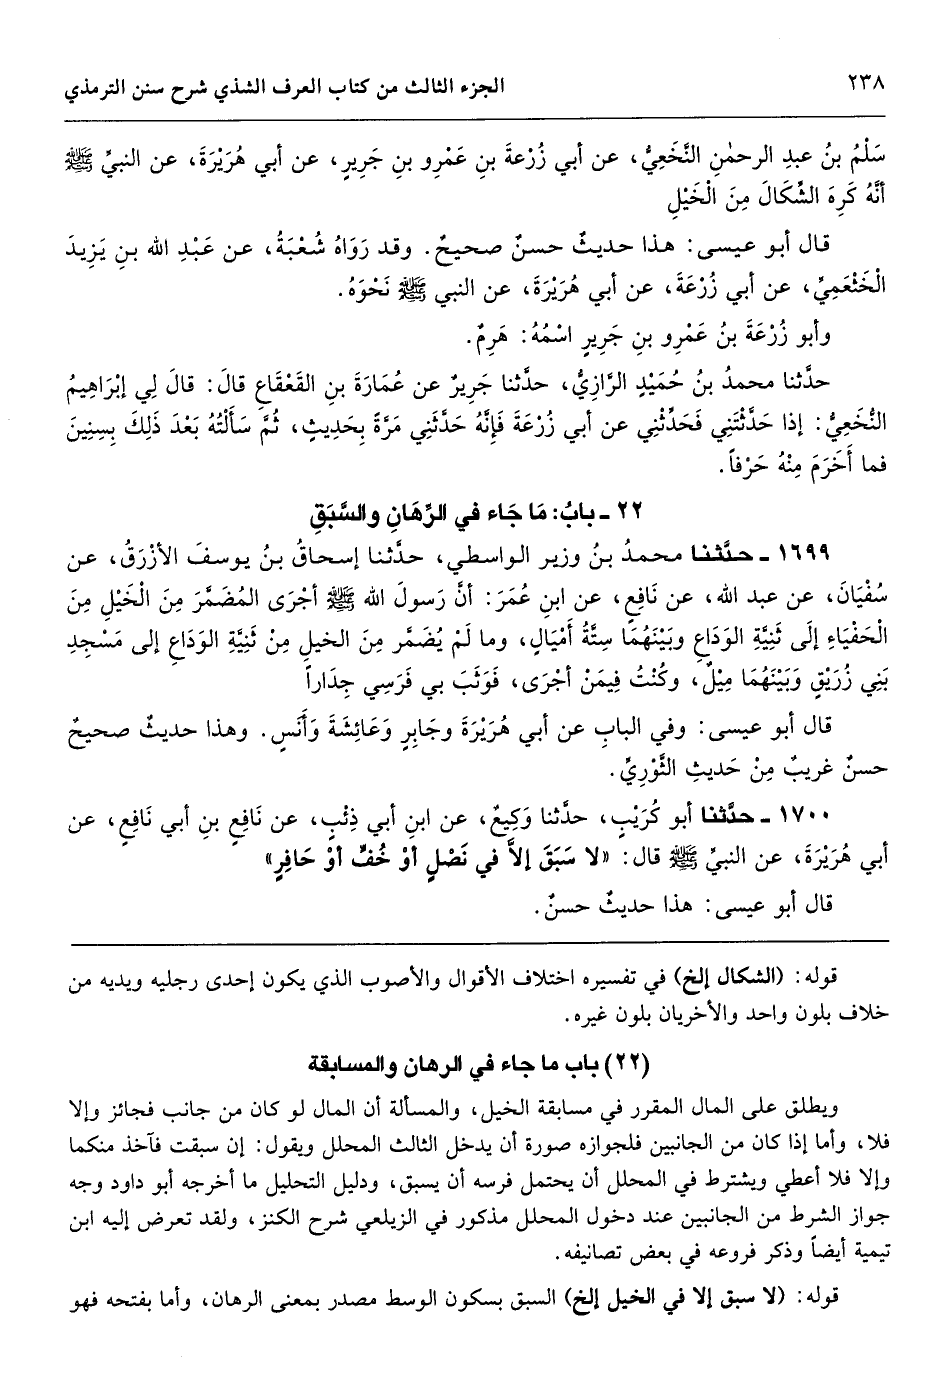 ٢٣٨ الجزء الثالث من كتاب العرف الشذي شرح سنن الترمذي
سَلْمُ بنُ عبدِ الرحمٰنِ النَّخَعِيُّ، عن أبي زُرْعةَ بنِ عَمْرِو بنِ جَرِيرٍ، عن أبي هُرَيْرَةَ، عن النبيِّ ﷺ
أنَّهُ كَرِهَ الشِّكَالَ مِنَ الْخَيْلِ
قال أبو عيسى: هذا حديثٌ حسنٌ صحيحٌ. وقد رَوَاهُ شُعْبَةُ، عن عَبْدِ الله بنِ يَزِيدَ
الْخَثْعَمِيِّ، عن أبي زُرْعَةَ، عن أبي هُرَيْرَةَ، عن النبي ﷺ نَحْوَهُ.
وأبو زُرْعَةَ بنُ عَمْرِو بنِ جَرِيرٍ اسْمُهُ: هَرِمٌ.
حدَّثنا محمدُ بنُ حُمَيْدٍ الرَّازِيُّ، حدَّثنا جَرِيرٌ عن عُمَارَةَ بنِ القَعْقَاعِ قالَ: قالَ لِي إبْرَاهِيمُ
النَّخَعِيُّ: إذا حَدَّثْتَنِي فَحَدِّثْنِي عن أبي زُرْعَةَ فَإِنَّهُ حَدَّثَنِي مَرَّةً بِحَدِيثٍ، ثُمَّ سَأَلْتُهُ بَعْدَ ذَلِكَ بِسِنِينَ
فما أَخَرَمَ مِنْهُ حَرْفاً.
٢٢ ـ بابُ: مَا جَاء في الرِّهَانِ والسَّبَقِ
١٦٩٩ ـ حدَّثنا محمدُ بنُ وزير الواسطي، حدَّثنا إسحاقُ بنُ يوسفَ الأزْرَقُ، عن
سُفْيَانَ، عن عبد الله، عن نَافِعٍ، عن ابنِ عُمَرَ: أنَّ رَسولَ الله ﷺ أجْرَى المُضَمَّرَ مِنَ الْخَيْلِ مِنَ
الْحَفْيَاءِ إلَى ثَنِيَّةِ الوَدَاعِ وبَيْنَهُمَا سِتَّةُ أمْيَالٍ، وما لَمْ يُضَمَّر مِنَ الخيلِ مِنْ ثَنِيَّةِ الوَدَاعِ إلى مَسْجِدِ
بَنِي زُرَيْقٍ وَبَيْنَهُمَا مِيْلٌ، وكُنْتُ فِيمَنْ أجْرَى، فَوَثَبَ بي فَرَسِي جِدَاراً
قال أبو عيسى: وفي البابِ عن أبي هُرَيْرَةَ وجَابِرٍ وَعَائِشَةَ وَأَنَسٍ. وهذا حديثٌ صحيحٌ
حسنٌ غريبٌ مِنْ حَديثِ الثَّوْرِيِّ.
١٧٠٠ ـ حدَّثنا أبو كُرَيْبٍ، حدَّثنا وَكِيعٌ، عن ابنِ أبي ذِئْبٍ، عن نَافِعٍ بنِ أبي نَافِعٍ، عن
أبي هُرَيْرَةَ، عن النبيِّ ﷺ قال: «لا سَبَقَ إلاَّ في نَصْلٍ أوْ خُفٍّ أوْ حَافِرٍ»
قال أبو عيسى: هذا حديثٌ حسنٌ.
قوله: (الشكال إلخ) في تفسيره اختلاف الأقوال والأصوب الذي يكون إحدى رجليه ويديه من
خلاف بلون واحد والأخريان بلون غيره.
(٢٢) باب ما جاء في الرهان والمسابقة
ويطلق على المال المقرر في مسابقة الخيل، والمسألة أن المال لو كان من جانب فجائز وإلا
فلا، وأما إذا كان من الجانبين فلجوازه صورة أن يدخل الثالث المحلل ويقول: إن سبقت فآخذ منكما
وإلا فلا أعطي ويشترط في المحلل أن يحتمل فرسه أن يسبق، ودليل التحليل ما أخرجه أبو داود وجه
جواز الشرط من الجانبين عند دخول المحلل مذكور في الزيلعي شرح الكنز، ولقد تعرض إليه ابن
تيمية أيضاً وذكر فروعه في بعض تصانيفه.
قوله: (لا سبق إلا في الخيل إلخ) السبق بسكون الوسط مصدر بمعنى الرهان، وأما بفتحه فهو